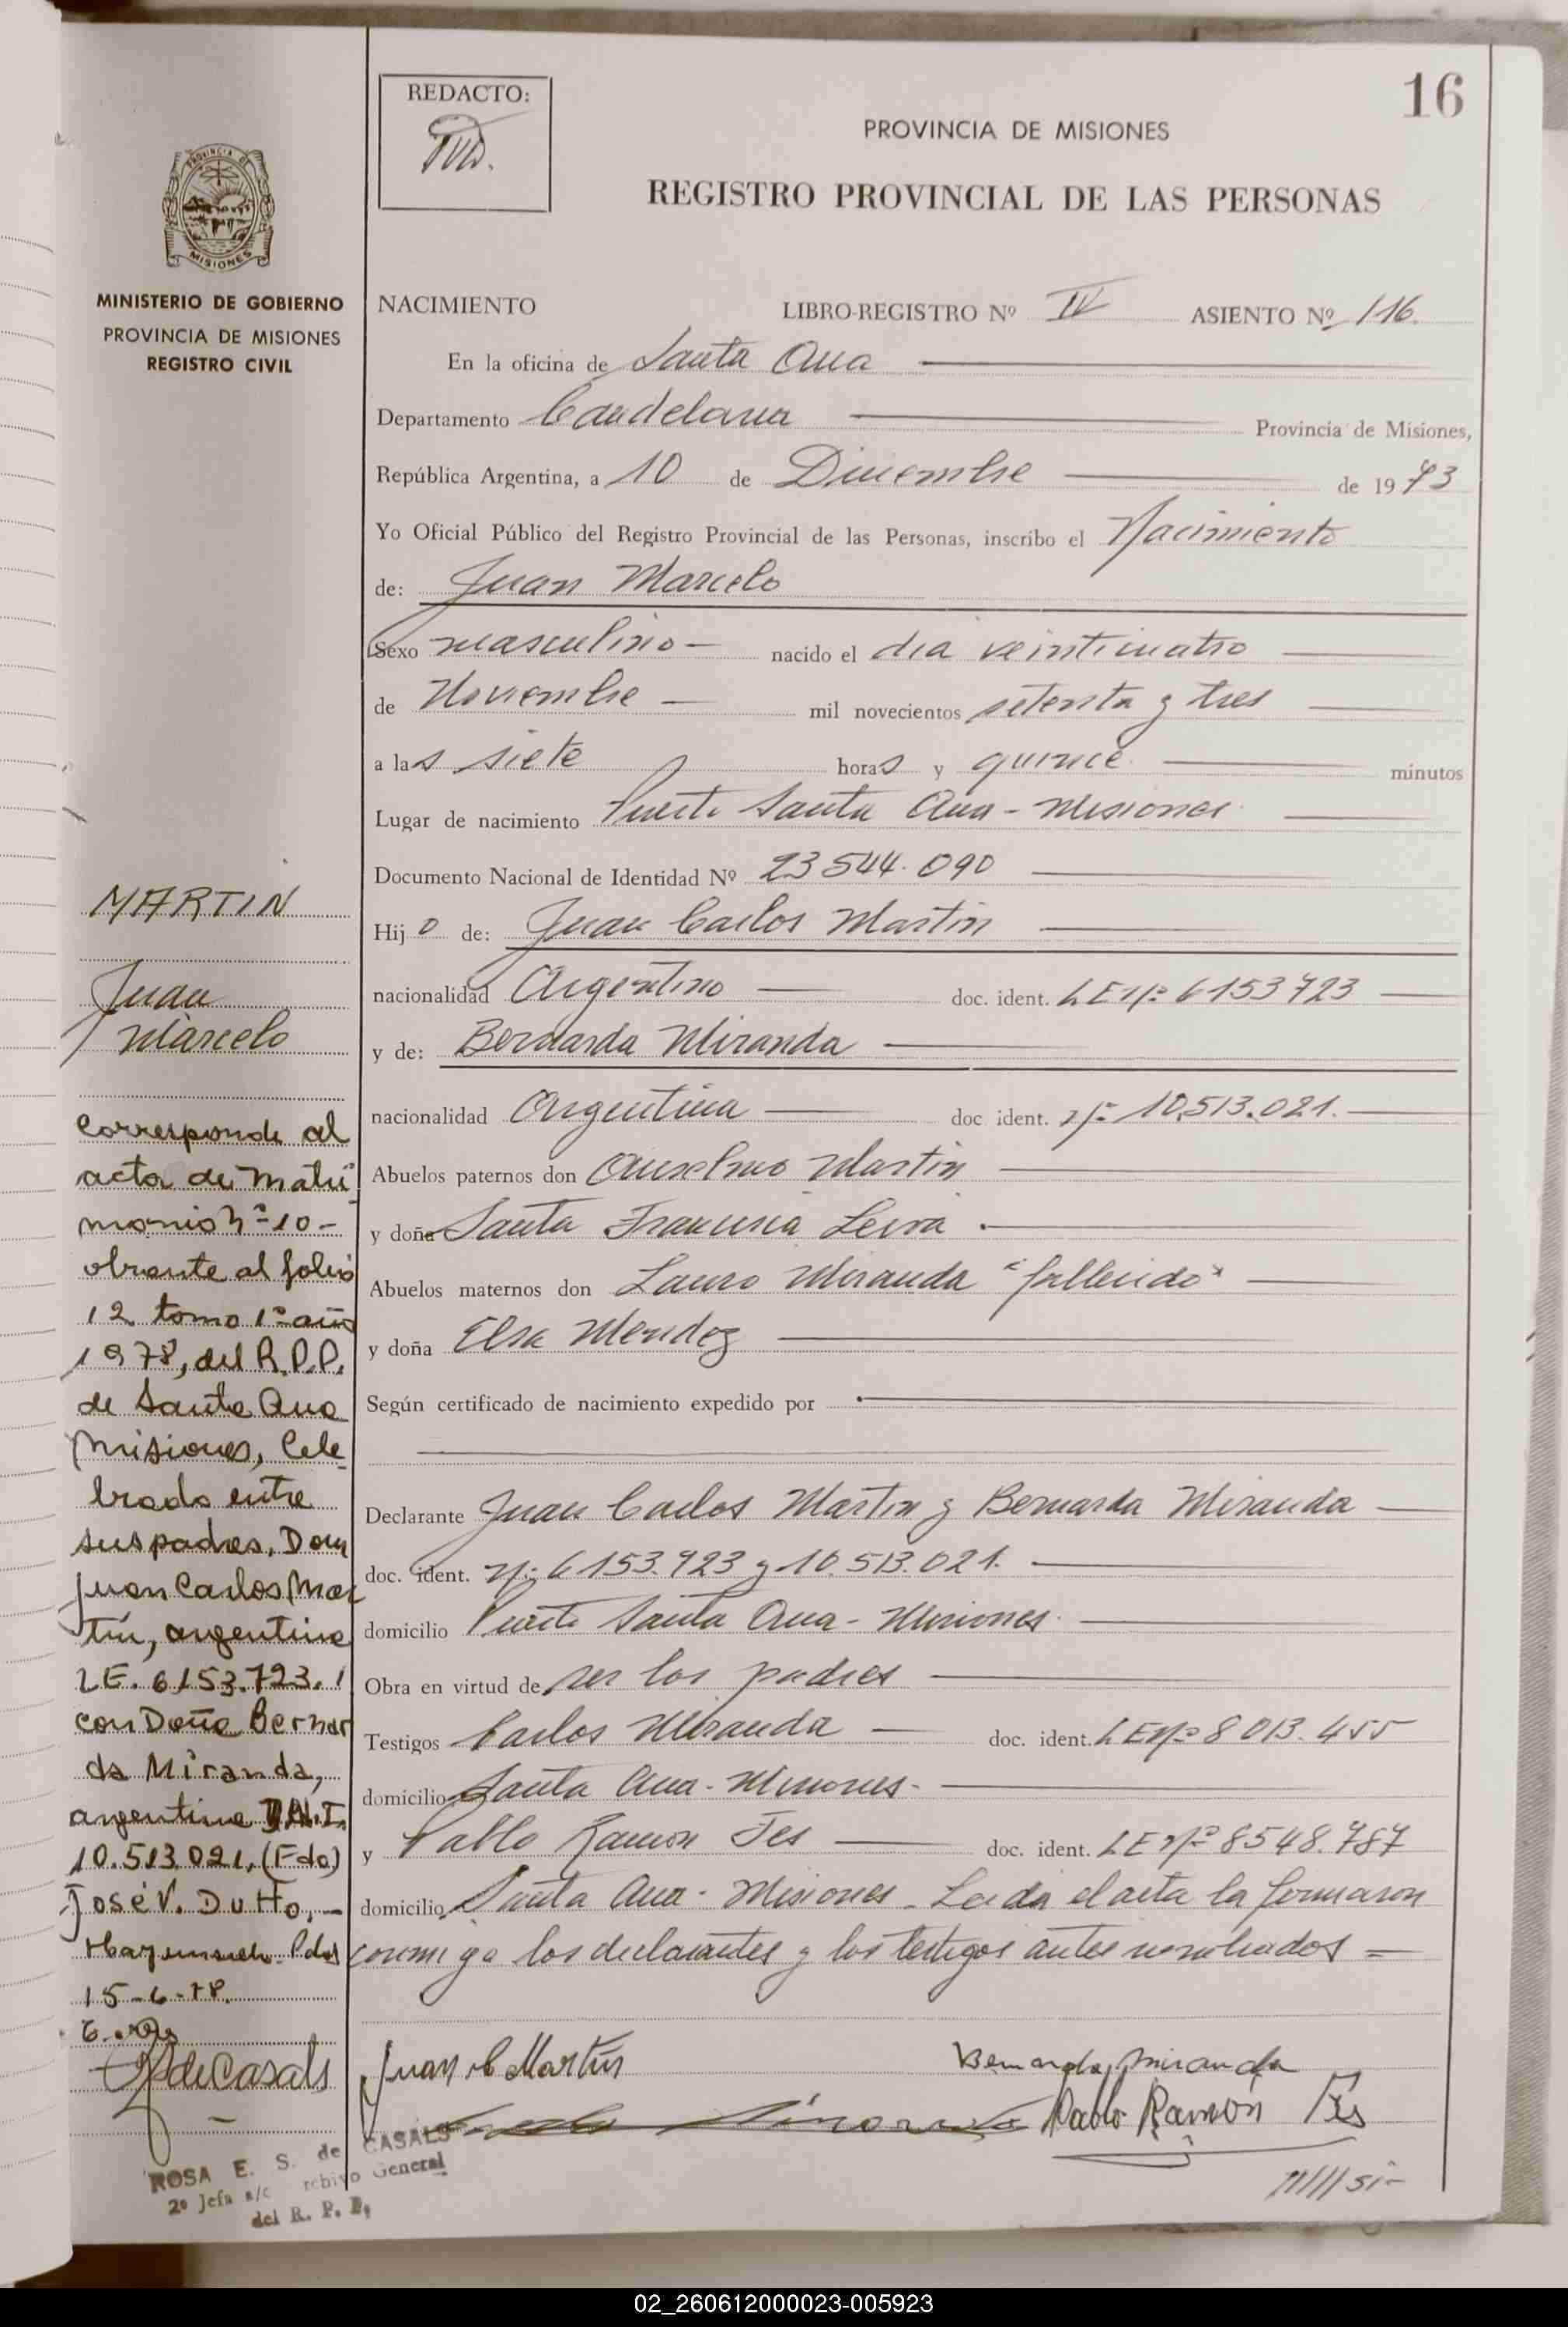 16
REDACTO:
PROVINCIA DE MISIONES
REGISTRO PROVINCIAL DE LAS PERSONAS
PROVINCIA DE
MISIONES
MINISTERIO DE GOBIERNO
PROVINCIA DE MISIONES
REGISTRO CIVIL
NACIMIENTO LIBRO-REGISTRO Nº IV ASIENTO Nº 116.
En la oficina de Santa Ana
Departamento Candelaria Provincia de Misiones,
República Argentina, a 10 de Diciembre de 1973
Yo Oficial Público del Registro Provincial de las Personas, inscribo el Nacimiento
de: Juan Marcelo
Sexo masculino nacido el dia veinticuatro
de Noviembre mil novecientos setenta y tres
a las siete horas y quince minutos
Lugar de nacimiento Puerto Santa Ana - Misiones
Documento Nacional de Identidad Nº 23544.090
Hijo de: Juan Carlos Martin
nacionalidad Argentino doc. ident. LE nº 6153723
y de: Bernarda Miranda
nacionalidad Argentina doc ident. nº 10.513.021.
Abuelos paternos don Anselmo Martin
y doña Santa Francisca Leiva.
Abuelos maternos don Lauro Miranda "fallecido"
y doña Elsa Mendez
Según certificado de nacimiento expedido por
Declarante Juan Carlos Martin y Bernarda Miranda
doc. ident. nº 6153.723 y 10.513.021.
domicilio Puerto Santa Ana - Misiones.
Obra en virtud de ser los padres
Testigos Carlos Miranda doc. ident. LE nº 8013.455
domicilio Santa Ana - Misiones -
y Pablo Ramon Fes doc. ident. LE nº 8548.787
domicilio Santa Ana - Misiones - Leida el acta la firmaron
conmigo los declarantes y los testigos antes nombrados =
Juan C Martín Bernarda miranda
Pablo Ramón
MARTIN
Juan
Marcelo
Corresponde al
acta de Matri
monio nº 10 -
obrante al folio
12 tomo 1º año
1978, del R.P.P.
de Santa Ana
Misiones, Cele
brado entre
sus padres, Don
Juan Carlos Mar
tín, argentino
LE. 6153.723.
con Doña Bernar
da Miranda,
argentina D.N.I.
10.513.021, (Fdo)
José V. Dutto, -
Pdas
15-6-78.
de Casals
ROSA E. S. de CASALS
2º Jefa a/c rchivo General
del R. P. P.
02_260612000023-005923